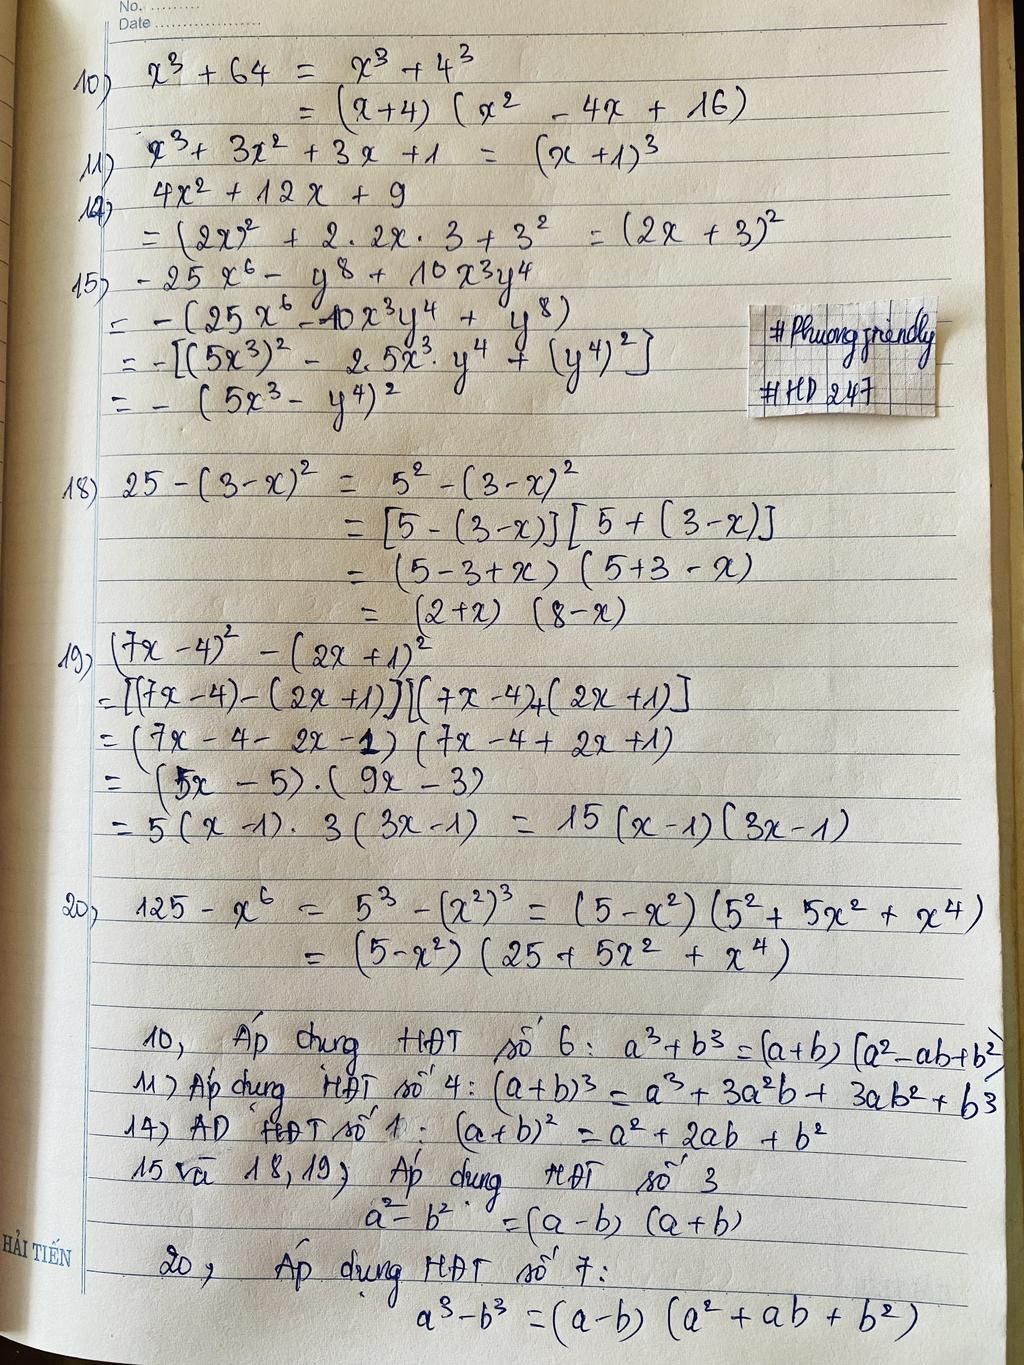 No. ..........
Date ....................
10) x³ + 64 = x³ + 4³
= (x+4) (x² - 4x + 16)
11) x³ + 3x² + 3x + 1 = (x + 1)³
12) 4x² + 12x + 9
= (2x)² + 2. 2x. 3 + 3² = (2x + 3)²
15) - 25x⁶ - y⁸ + 10x³y⁴
= - (25x⁶ - 10x³y⁴ + y⁸)
= -[(5x³)² - 2.5x³. y⁴ + (y⁴)²]
= - (5x³ - y⁴)²
#Phuongfriendly
#HD 247
18) 25 - (3-x)² = 5² - (3-x)²
= [5 - (3-x)] [5 + (3-x)]
= (5-3+x) (5+3-x)
= (2+x) (8-x)
19) (7x - 4)² - (2x + 1)²
= [(7x-4) - (2x+1)][(7x-4)+(2x+1)]
= (7x - 4 - 2x - 1) (7x - 4 + 2x + 1)
= (5x - 5) . (9x - 3)
= 5(x -1). 3(3x-1) = 15(x-1)(3x-1)
20) 125 - x⁶ = 5³ - (x²)³ = (5-x²) (5² + 5x² + x⁴)
= (5-x²) (25 + 5x² + x⁴)
10, Áp dụng HĐT số 6: a³ + b³ = (a+b) (a²-ab+b²)
11) Áp dụng HĐT số 4: (a+b)³ = a³ + 3a²b + 3ab² + b³
14) AD HĐT số 1: (a+b)² = a² + 2ab + b²
15 và 18, 19) Áp dụng HĐT số 3
a² - b² = (a-b) (a+b)
20, Áp dụng HĐT số 7:
a³-b³ = (a-b) (a² + ab + b²)
HẢI TIẾN